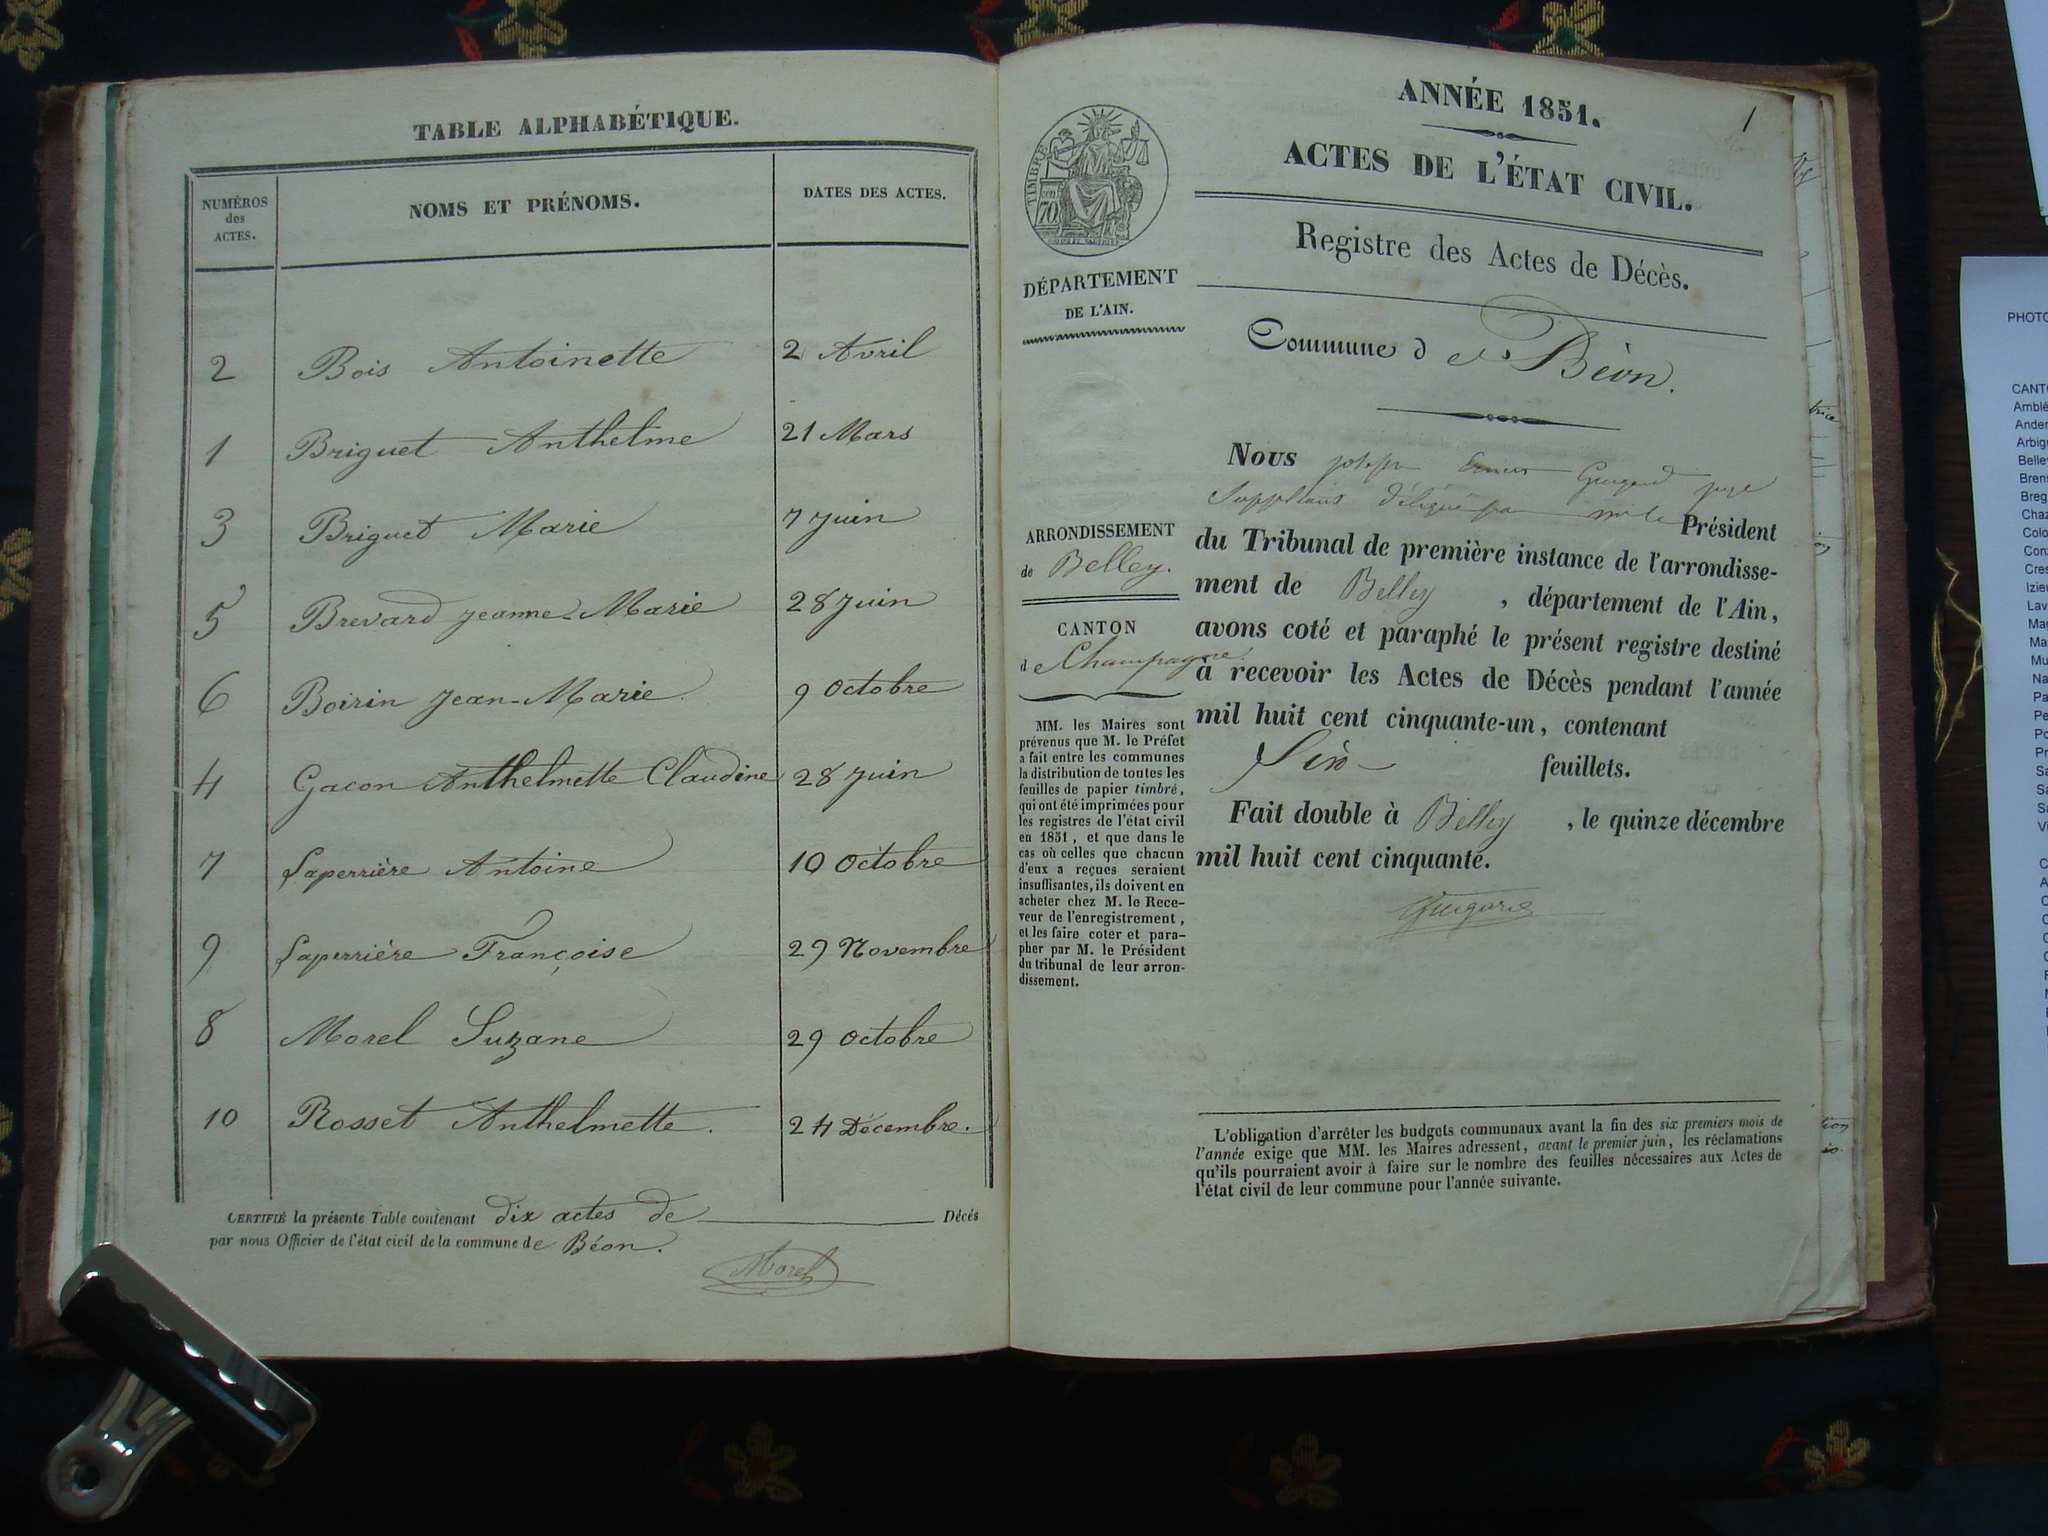 TABLE ALPHABÉTIQUE.
NUMÉROS
des
ACTES.
NOMS ET PRÉNOMS.
DATES DES ACTES.
2 Bois Antoinette 2 Avril
1 Briguet Anthelme 21 Mars
3 Briguet Marie 7 Juin
5 Brevard Jeanne-Marie 28 Juin
6 Boirin Jean-Marie 9 Octobre
4 Gacon Anthelmette Claudine 28 Juin
7 Laperrière Antoine 10 Octobre
9 Laperrière Françoise 29 Novembre
8 Morel Suzane 29 Octobre
10 Rosset Anthelmette. 24 Décembre.
CERTIFIÉ la présente Table contenant dix actes de Décés
par nous Officier de l'état civil de la commune de Béon.
Morel
1
ANNÉE 1851.
ACTES DE L'ÉTAT CIVIL.
Registre des Actes de Décès.
TIMBRE
70
DÉPARTEMENT
DE L'AIN.
Commune de Béon.
ARRONDISSEMENT
de Belley.
CANTON
de Champagne.
MM. les Maires sont
prévenus que M. le Préfet
a fait entre les communes
la distribution de toutes les
feuilles de papier timbré,
qui ont été imprimées pour
les registres de l'état civil
en 1851, et que dans le
cas où celles que chacun
d'eux a reçues seraient
insuffisantes, ils doivent en
acheter chez M. le Rece-
veur de l'enregistrement,
et les faire coter et para-
pher par M. le Président
du tribunal de leur arron-
dissement.
Nous joseph juge
Président
du Tribunal de première instance de l'arrondisse-
ment de Belley, département de l'Ain,
avons coté et paraphé le présent registre destiné
à recevoir les Actes de Décès pendant l'année
mil huit cent cinquante-un, contenant
Six feuillets.
Fait double à Belley, le quinze décembre
mil huit cent cinquante.
L'obligation d'arrêter les budgets communaux avant la fin des six premiers mois de
l'année exige que MM. les Maires adressent, avant le premier juin, les réclamations
qu'ils pourraient avoir à faire sur le nombre des feuilles nécessaires aux Actes de
l'état civil de leur commune pour l'année suivante.
PHOTO
CANT
Amblé
Ander
Arbig
Belle
Bren
Breg
Chaz
Colo
Con
Cres
Izie
Lav
Ma
Ma
Mu
Na
Pa
Pe
Po
Pr
Sa
Sa
Sa